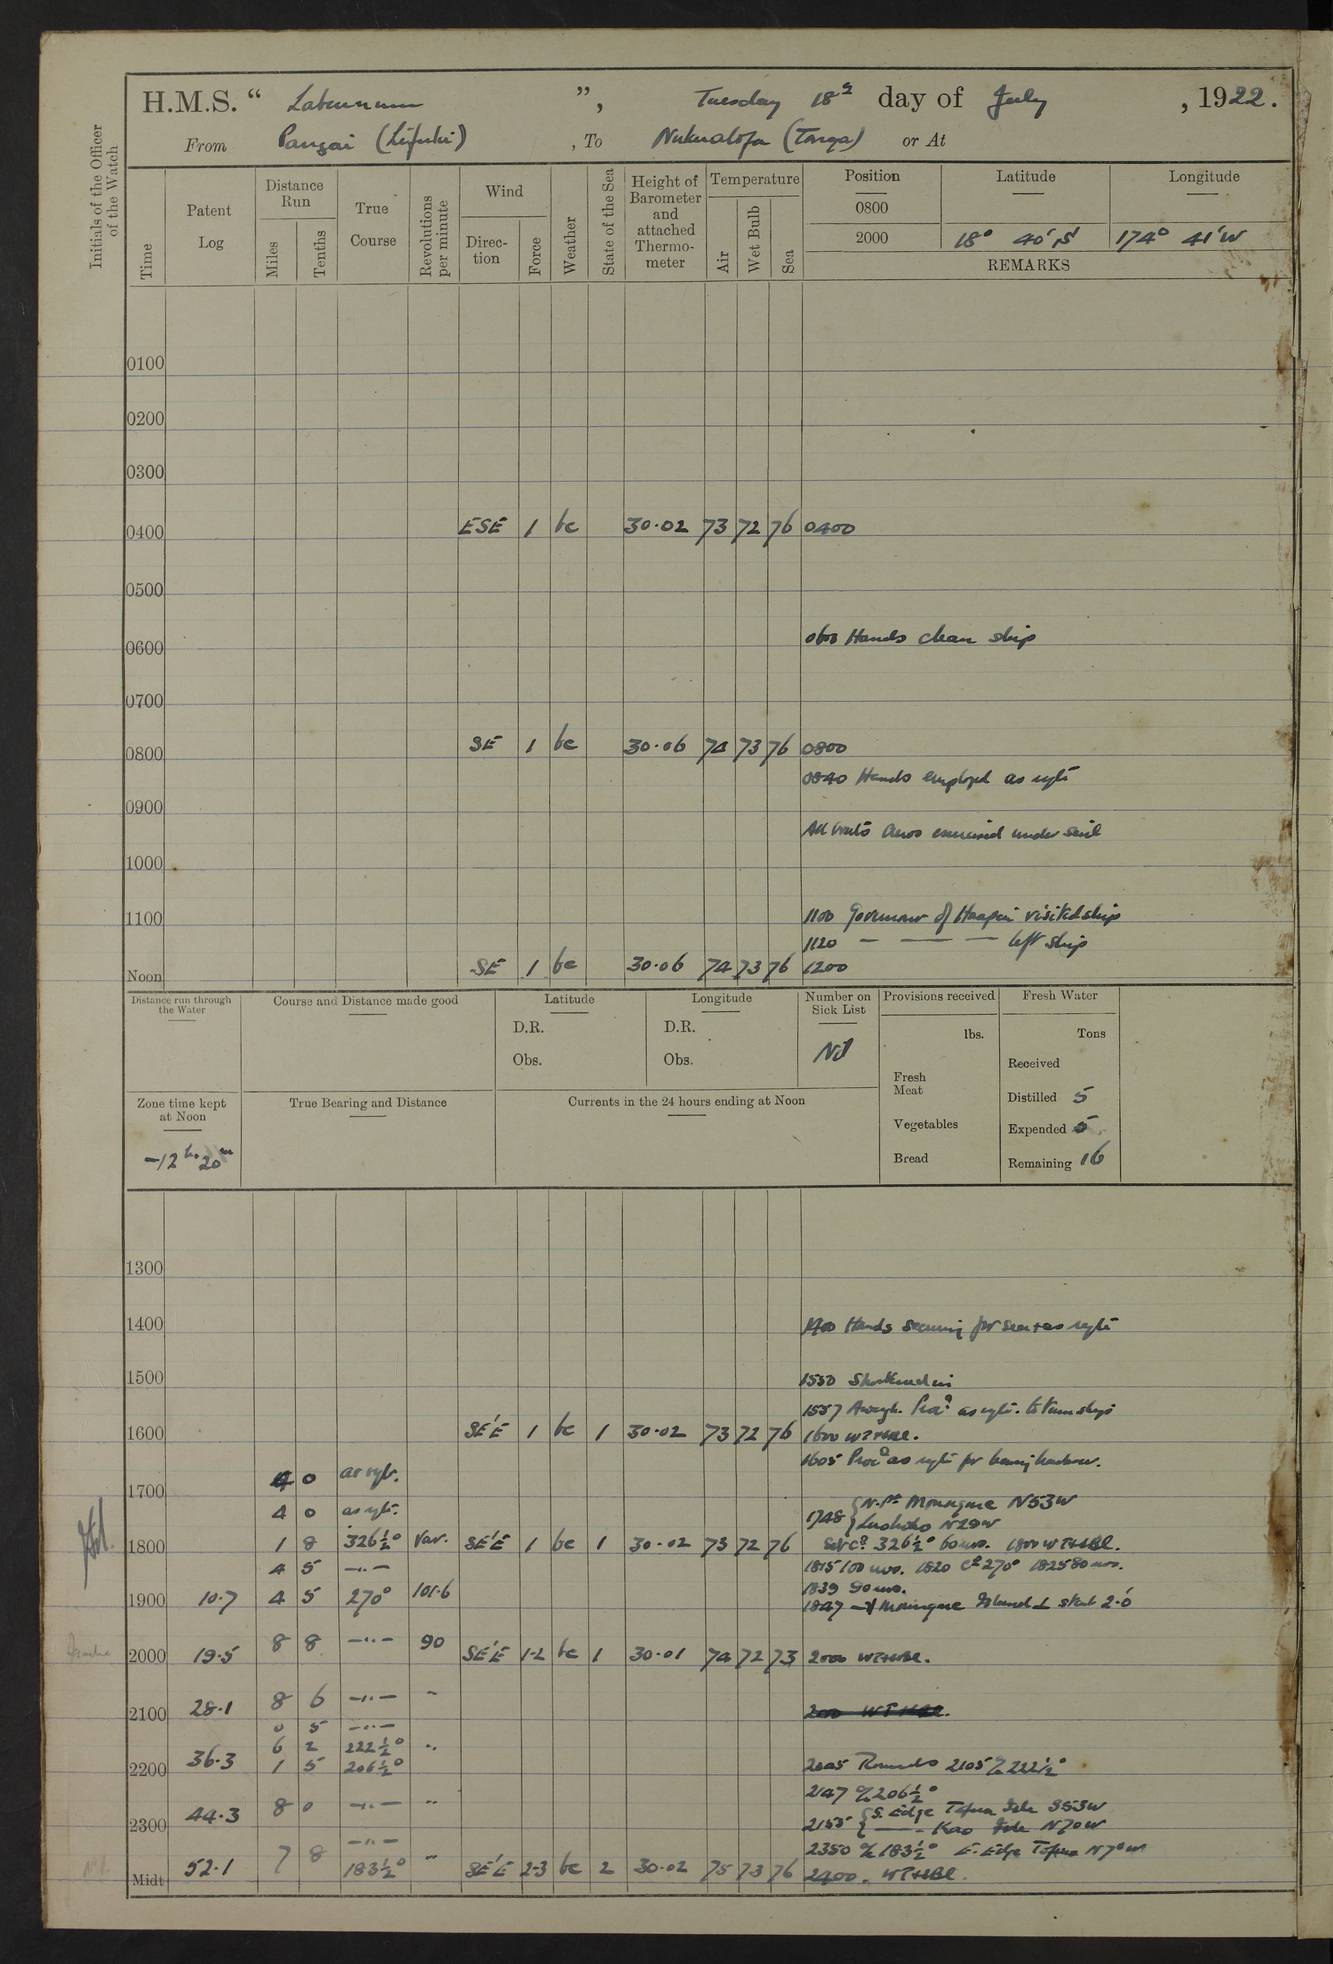 H.M.S. “ Laburnum ”, Tuesday 18th day of July, 1922.
From Pangai (Lifuki), To Nukualofa (Tonga) or At
Initials of the Officer of the Watch
Time
Patent Log
Distance Run
Miles
Tenths
True Course
Revolutions per minute
Wind
Direction
Force
Weather
State of the Sea
Height of Barometer and attached Thermometer
Temperature
Air
Wet Bulb
Sea
Position Latitude Longitude
0800
2000 18° 40' S 174° 41' W
REMARKS
0100
0200
0300
0400 ESE 1 bc 30.02 73 72 76 0400
0500
0600 Hands clean ship
0700
0800 SE 1 bc 30.06 74 73 76 0800
0840 Hands employed as reqte
0900
All boats crews exercised under sail
1000
1100 1100 Governour of Haapai visited ship
1120 — — — left ship
Noon SE 1 bc 30.06 74 73 76 1200
Distance run through the Water
Course and Distance made good
Latitude
D.R.
Obs.
Longitude
D.R.
Obs.
Number on Sick List
Nil
Provisions received
lbs.
Fresh Meat
Vegetables
Bread
Fresh Water
Tons
Received
Distilled 5
Expended 5
Remaining 16
Zone time kept at Noon
-12 hrs 20m
True Bearing and Distance
Currents in the 24 hours ending at Noon
1300
1400 1400 Hands securing for sea & as reqte
1500 1530 Shortened in
1557 Aweigh. Procd as reqte. to turn ship
1600 SE'E 1 bc 1 30.02 73 72 76 1600 WT+HBl.
1605 Procd as reqte for leaving harbour.
4 0 as reqte.
1700
4 0 as reqte. 1748 {N. Pt Moungone N53W
{Luahoko N29W
1800 1 8 326½° Var. SE'E 1 bc 1 30.02 73 72 76 Set Co 326½° 60 revs. 1800 WT+HBl.
4 5 —"— 1815 100 revs. 1820 Co 270° 1825 80 revs.
1839 90 revs.
1900 10.7 4 5 270° 101.6 1847 Moungone Island ⊥ stbd 2.0'
2000 19.5 8 8 —"— 90 SE'E 1-2 bc 1 30.01 74 72 73 2000 WT+HBl.
2100 28.1 8 6 —"— " 200 WT HBl.
0 5 —"—
6 2 222½° "
2200 36.3 1 5 206½° 2045 Rounds 2105 a/c 222½°
2147 a/c 206½°
2300 44.3 8 0 —"— " 2155 {S. Edge Tofua Isle S53W
{——— Kao Isle N70W
—"— 2350 a/c 183½° E. Edge Tofua N7°W
Midt 52.1 7 8 183½° " SE'E 2-3 bc 2 30.02 75 73 76 2400. WT+HBl.